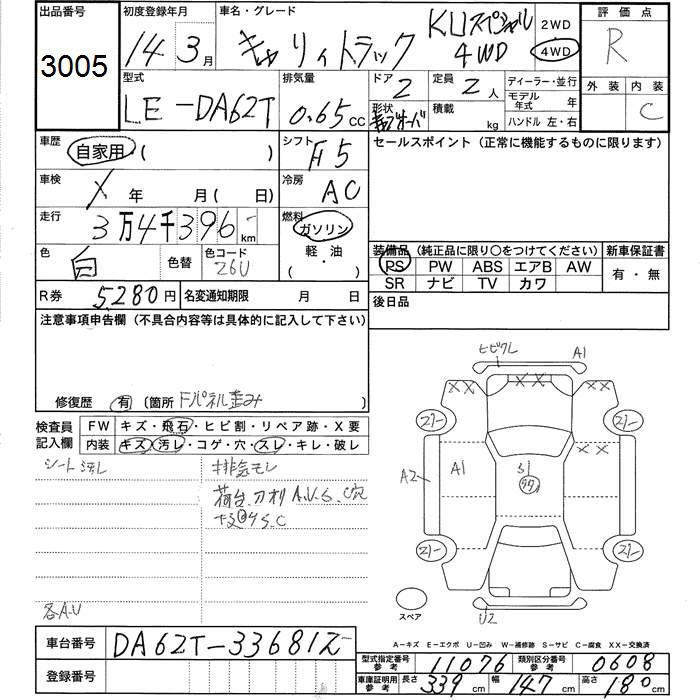 出品番号
3005
初度登録年月
14 3月
車名・グレード
キャリィトラック KUスペシャル 4WD
2WD
4WD
評価点
R
外装 内装
C
型式
LE-DA62T
排気量
0.65 CC
ドア 2
形状
定員 2 人
積載 kg
ディーラー・並行
モデル年式 年
ハンドル 左・右
車歴
自家用・( )
シフト F5
セールスポイント(正常に機能するものに限ります)
車検
X 年 月(日)
冷房 AC
走行
3万4千396 km
燃料
ガソリン
軽・油
( ・ )
色 白
色替
色コード 26U
装備品(純正品に限り○をつけてください)
PS PW ABS エアB AW
SR ナビ TV カワ
新車保証書
有・無
R券 5280円
名変通知期限 月 日
後日品
注意事項申告欄(不具合内容等は具体的に記入して下さい)
修復歴 有 (箇所 Fパネル歪み
検査員記入欄
FW キズ・飛石・ヒビ割・リペア跡・X要
内装 キズ・汚レ・コゲ・穴・スレ・キレ・破レ
シート汚レ
排気モレ
荷台 A.U.S.C穴
各A.U
ヒビワレ
A1
XX
XX
XX
A2
A1
S1
U2
スペア
A-キズ E-エクボ U-凹み W-補修跡 S-サビ C-腐食 XX-交換済
車台番号 DA62T-336812
登録番号
型式指定番号 参考 11076
類別区分番号 参考 0608
車庫証明用 参考 長さ 339 cm 幅 147 cm 高さ 180 cm